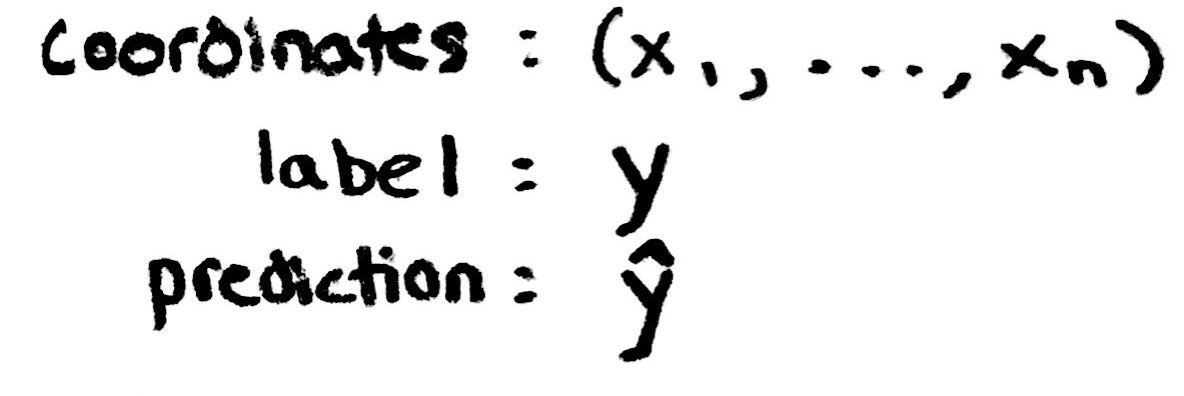 coordinates : (x₁, ..., xₙ)
label : y
prediction : ŷ